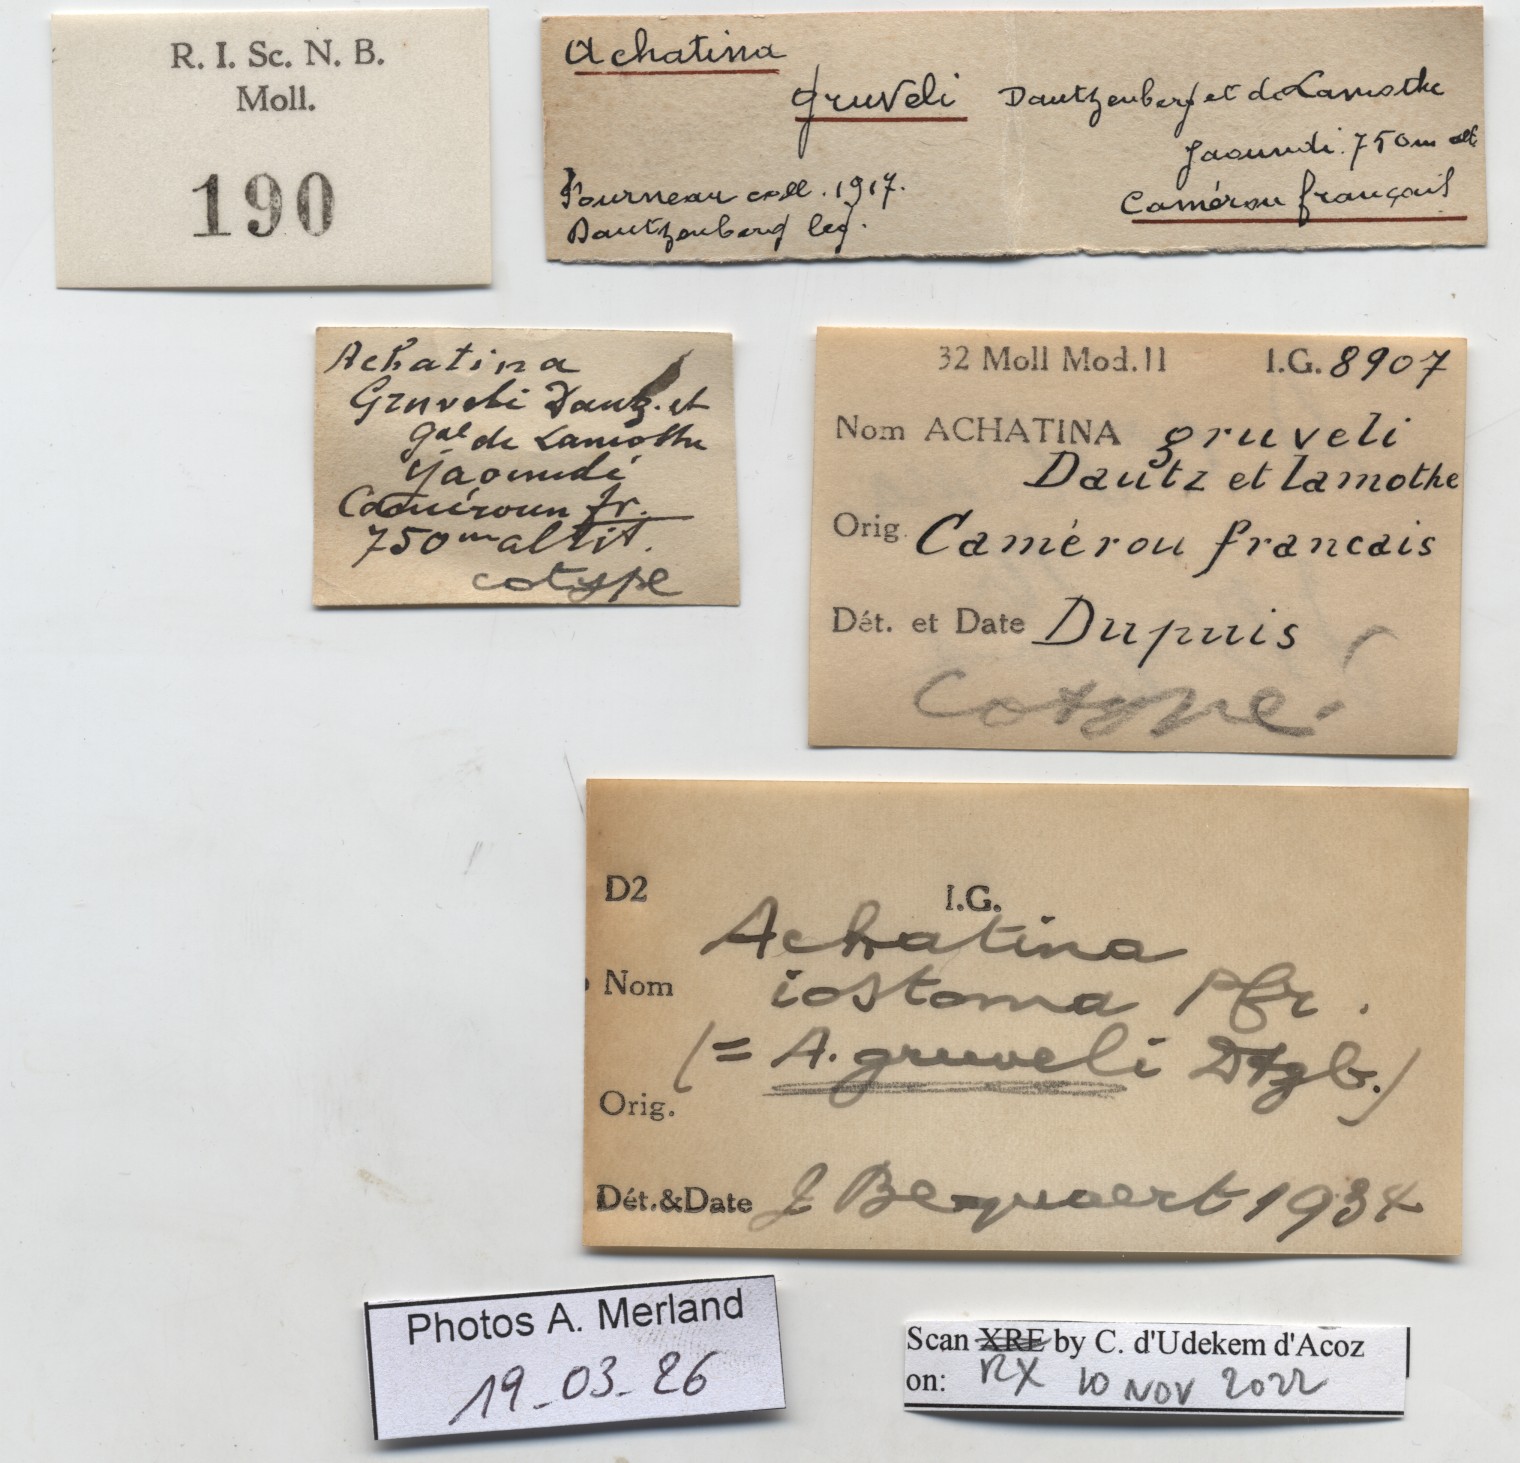 R. I. Sc. N. B.
Moll.
190
Achatina
gruveli Dautzenberg et de Lamothe
Jaoundi. 750m alt
Fourneau coll. 1917.
Camérou français
Dautzenberg leg.
Achatina
Gruveli Dautz. et
Gal de Lamothe
Yaoundé
Caméroun fr.
750m altit.
cotype
32 Moll Mod. II I.G. 8907
Nom ACHATINA gruveli
Dautz et Lamothe
Orig. Camérou francais
Dét. et Date Dupuis
Cotype
D2 I.G.
Achatina
Nom iostoma Pfr.
(= A. gruveli Dtzb.)
Orig.
Dét.&Date J Bequaert 1934
Photos A. Merland
19_03_26
Scan XRE by C. d'Udekem d'Acoz
on: RX 10 NOV 2022